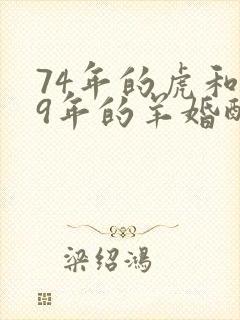 74年的虎和
9年的羊婚配
梁绍鸿